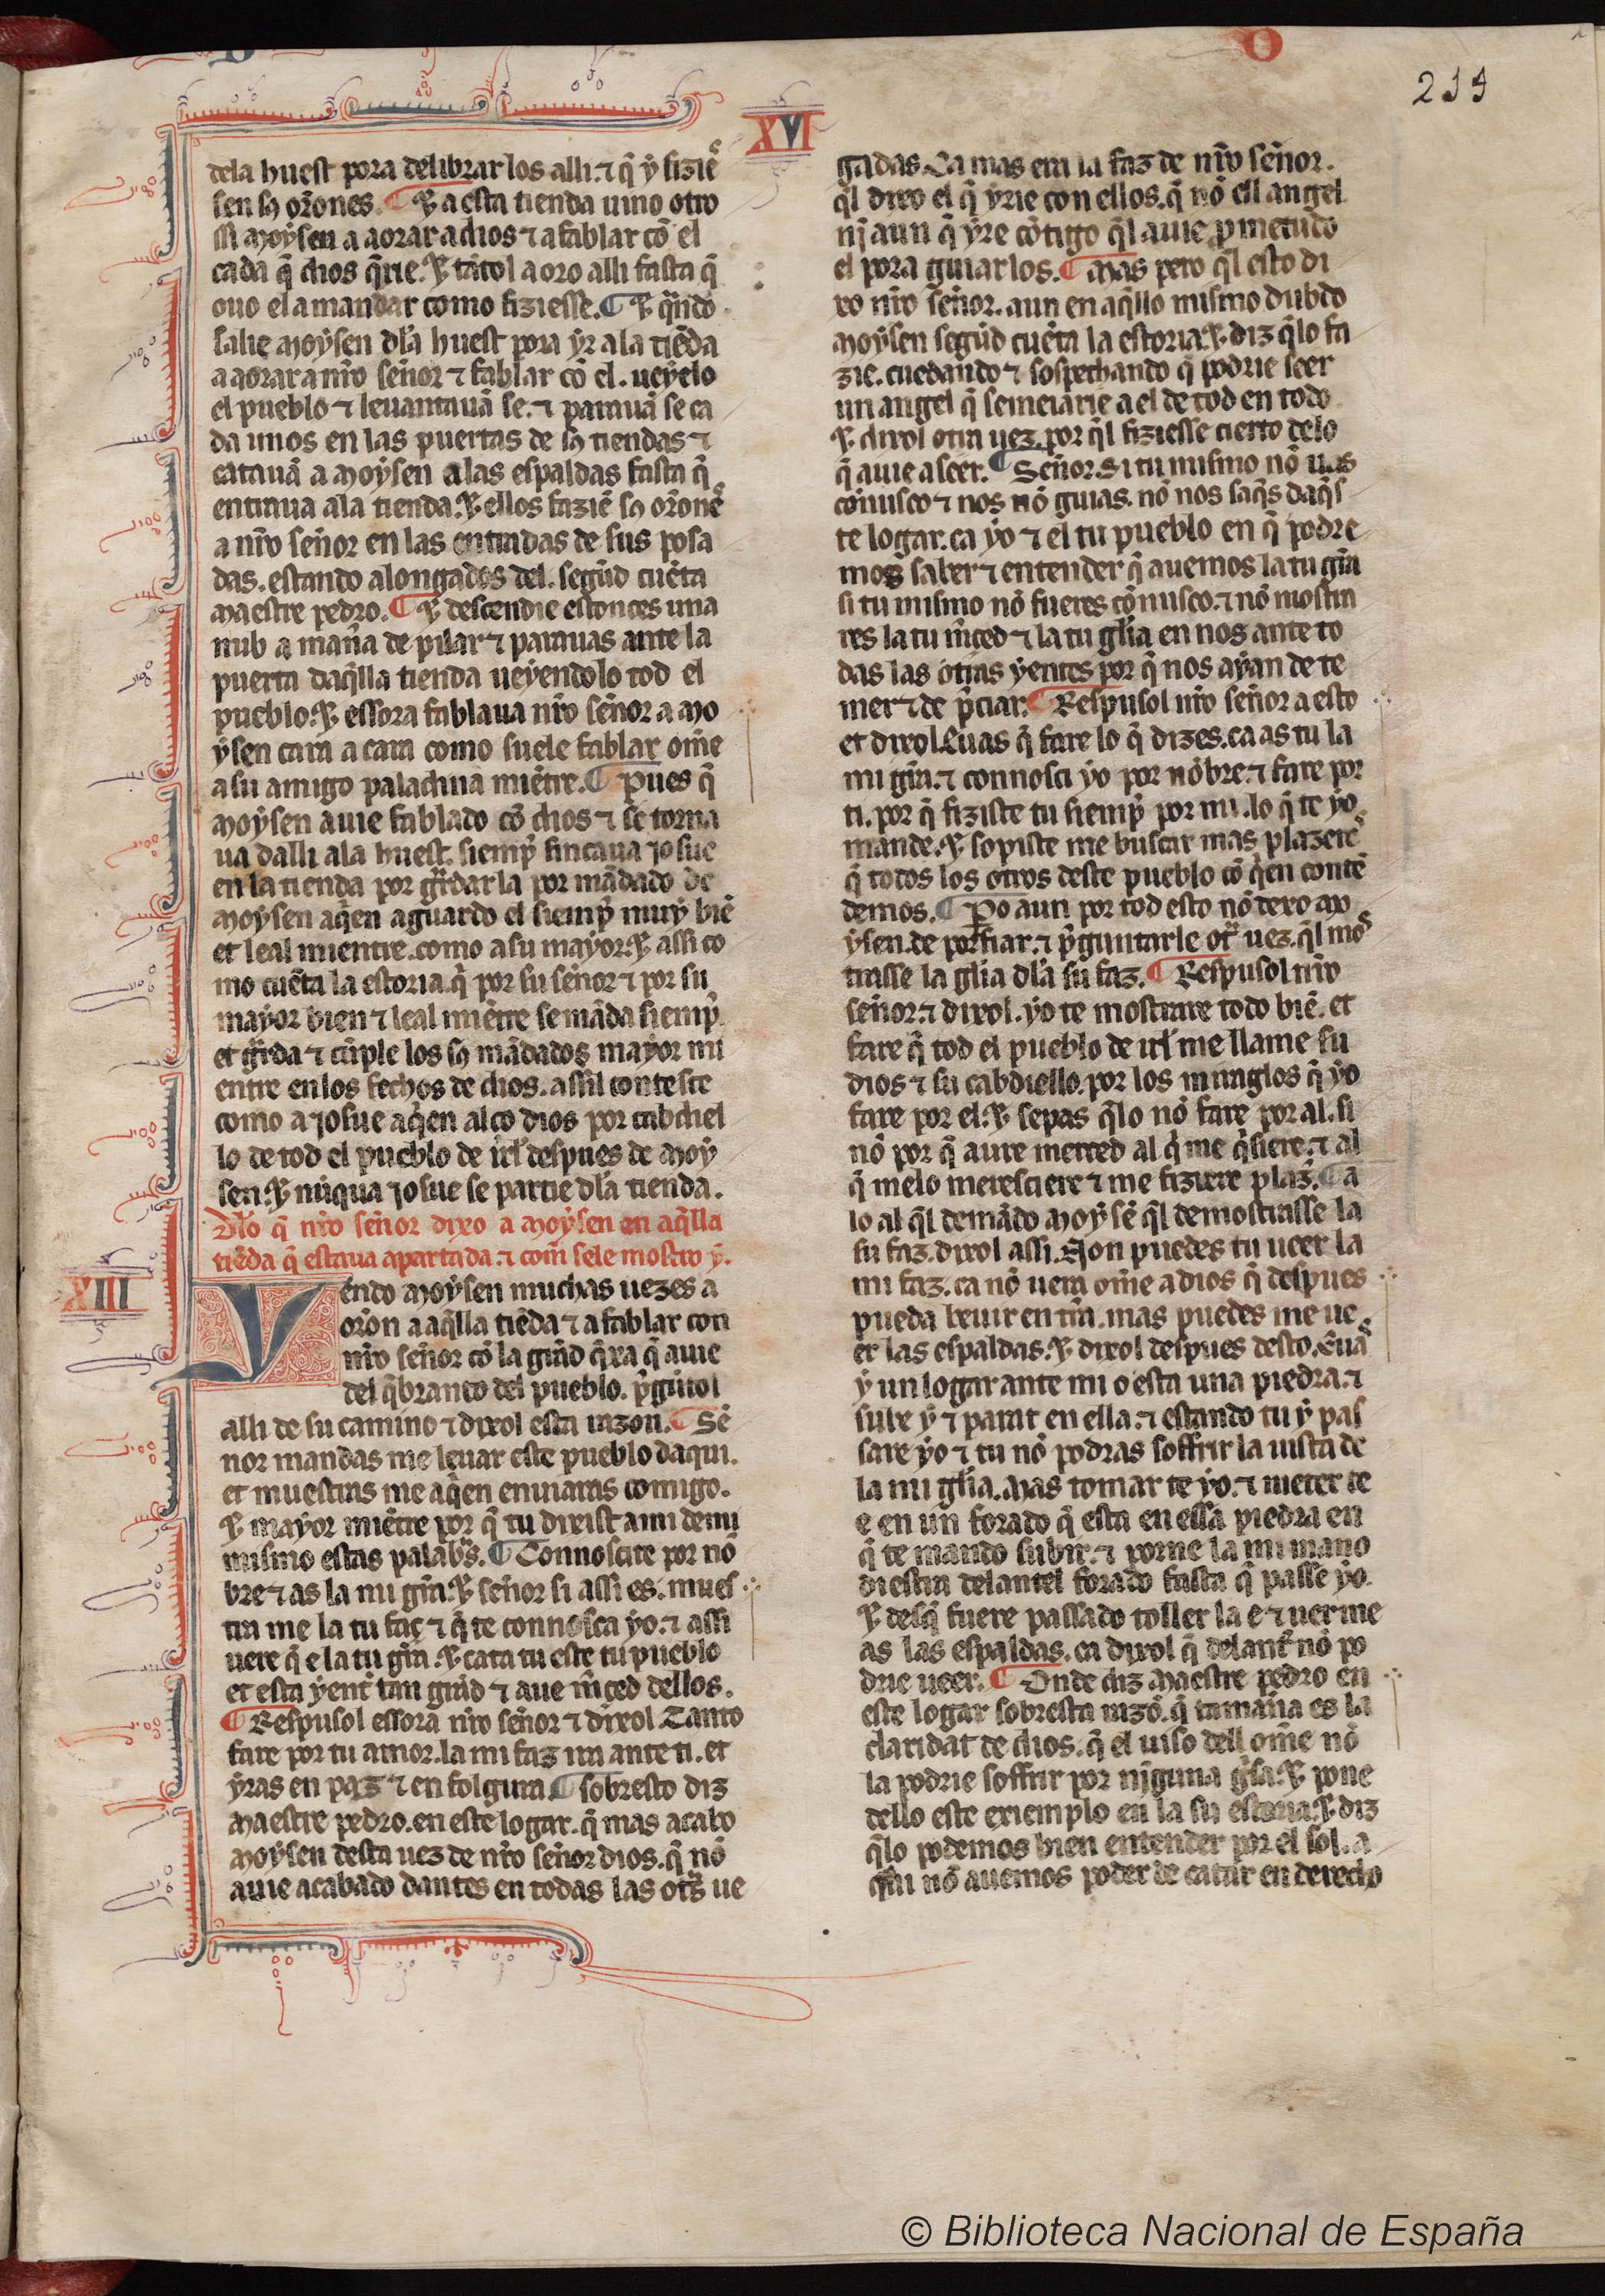 O
215
XVI
dela huest pora delibrar los alli. ⁊ q̃ ẏ fiziẽ
sen sꝯ or̃ones. ¶ Et a esta tienda uino otro
ssi Moẏsen a aorar a dios ⁊ a fablar cõ el
cada q̃ dios q̃rie. Et tãtol aoro alli fasta q̃
ouo el a mandar como fiziesse. ¶ Et q̃ndo
salie Moẏsen dl̃a huest pora ẏr a la tiẽda
a aorar a nr̃o señor ⁊ fablar cõ el. ueẏelo
el pueblo ⁊ leuantauã se. ⁊ parauã se ca
da unos en las puertas de sꝯ tiendas ⁊
catauã a Moẏsen alas espaldas fasta q̃
entraua ala tienda. Et ellos faziẽ sꝯ or̃onẽs
a nr̃o señor en las entradas de sus posa
das. estando alongados del. segũd cuẽta
Maestre pedro. ¶ Et descendie estonces una
nub a mañа de pilar ⁊ parauas ante la
puerta daq̃lla tienda ueyendolo tod el
pueblo. Et essora fablaua nr̃o señor a Mo
ẏsen cara a cara como suele fablar om̃e
a su amigo paladina miẽtre. ¶ Pues q̃
Moẏsen auie fablado cõ dios ⁊ se torna
ua dalli ala huest. siemp̃ fincaua Josue
en la tienda por gr̃dar la por mãdado de
Moẏsen aq̃en aguardo el siemp̃ muẏ biẽ
et leal mientre. como a su maẏor. Et assi co
mo cuẽta la estoria. q̃ por su señor ⁊ por su
maẏor bien ⁊ leal miẽtre se mãda siemp̃.
et gr̃da ⁊ cũple los sꝯ mãdados maẏor mi
entre en los fechos de dios. assil contesce
como a Josue aq̃en alço dios por cabdiel
lo de tod el pueblo de irl̃ despues de Moẏ
sen. Et nũqua Josue se partie dl̃a tienda.
Dlo q̃ nr̃o señor dixo a Moẏsen en aq̃lla
tiẽda q̃ estaua apartada. ⁊ com̃ sele mostro ẏ.
XIII
Uendo Moẏsen muchas uezes a
or̃on a aq̃lla tiẽda ⁊ a fablar con
nr̃o señor cõ la grãd q̃xa q̃ auie
del q̃branto del pueblo. p̃gũtol
alli de su camino ⁊ dixol esta razon. ¶ Se
ñor mandas me leuar este pueblo daqui.
et muestras me aq̃en enuiaras comigo.
Et maẏor miẽtre por q̃ tu dixist a mi de mi
mismo estas palabr̃s. ¶ Connoscite por nõ
bre ⁊ as la mi gr̃a. Et señor si assi es. mues
tra me la tu faç ⁊ q̃ te connosca ẏo. ⁊ assi
uere q̃ e la tu gr̃a. Et cata tu este tu pueblo
et esta ẏent tan grãd ⁊ aue m̃çed dellos.
¶ Respusol essora nr̃o señor ⁊ dixol Tanto
fare por tu amor. la mi faz ira ante ti. et
ẏras en paz ⁊ en folgura. ¶ sobresto diz
Maestre pedro. en este logar. q̃ mas acabo
Moẏsen desta uez de nr̃o señor dios. q̃ nõ
auie acabado dantes en todas las otr̃s ue
gadas. Ca mas era la faz de nr̃o señor.
q̃l dixo el q̃ ẏrie con ellos. q̃ nõ ell angel
nĩ aun q̃ ẏre cõtigo q̃l auie p̃metudo
el pora guiar los. ¶ Mas pero q̃l esto di
xo nr̃o señor. aun en aq̃llo mismo dubdo
Moẏsen segũd cuẽta la estoria. Et diz q̃lo fa
zie. cuedando ⁊ sospechando q̃ podrie seer
un angel q̃ semeiarie a el de tod en todo.
Et dixol otra uez. por q̃l fiziesse cierto delo
q̃ auie a seer. ¶ Señor. Si tu mismo nõ uas
cõnusco ⁊ nos nõ guias. nõ nos saq̃s daq̃s
te logar. ca ẏo ⁊ el tu pueblo en q̃ podre
mos saber ⁊ entender q̃ auemos la tu gr̃a
si tu mismo nõ fueres cõnusco. ⁊ nõ mostra
res la tu m̃çed ⁊ la tu gl̃ia en nos ante to
das las otras ẏentes por q̃ nos aẏan de te
mer ⁊ de p̃ciar. ¶ Respusol nr̃o señor a esto
et dixol Euas q̃ fare lo q̃ dizes. ca as tu la
mi gr̃a. ⁊ connosci ẏo por nõbre. ⁊ fare por
ti. por q̃ fiziste tu siemp̃ por mi. lo q̃ te ẏo
mande. Et sopiste me buscar mas plazerẽs
q̃ todos los otros deste pueblo cõ q̃en contẽ
demos. ¶ Po aun por tod esto nõ dexo Mo
ẏsen de porfiar. ⁊ p̃guntarle otr̃ uez. q̃l mos
trasse la gl̃ia dl̃a su faz. ¶ Respusol nr̃o
señor. ⁊ dixol. ẏo te mostrare todo biẽ. et
fare q̃ tod el pueblo de irl̃ me llame su
dios ⁊ su cabdiello. por los miraglos q̃ ẏo
fare por el. Et sepas q̃lo nõ fare por al. si
nõ por q̃ aure merced al q̃ me q̃siere. ⁊ al
q̃ melo meresciere ⁊ me fiziere plaz̃. ¶ A
lo al q̃l demãdo Moẏsẽ q̃l demostrasse la
su faz. dixol assi. Non puedes tu ueer la
mi faz. ca nõ uera om̃e a dios q̃ despues
pueda beuir en tr̃a. mas puedes me ue
er las espaldas. Et dixol despues desto. Euã
ẏ un logar ante mi o esta una piedra. ⁊
sube ẏ ⁊ parat en ella. ⁊ estando tu ẏ pas
sare ẏo ⁊ tu nõ podras soffrir la uista de
la mi gl̃ia. Mas tomar te ẏo. ⁊ meter te
e en un forado q̃ esta en essa piedra en
q̃ te mando subir. ⁊ porne la mi mano
diestra delantel forado fasta q̃ passe ẏo.
Et desq̃ fuere passado toller la e ⁊ uerme
as las espaldas. ca dixol q̃ delant̃ nõ po
drie ueer. ¶ Onde diz Maestre pedro en
este logar sobresta razõ. q̃ tamaña es la
claridat de dios. q̃ el uiso dell om̃e nõ
la podrie soffrir por nĩguna gi̇sa. Et pone
dello este exiemplo en la su estoria. Et diz
q̃lo podemos bien entender por el sol. a
qui nõ auemos poder de catar en derecho
© Biblioteca Nacional de España